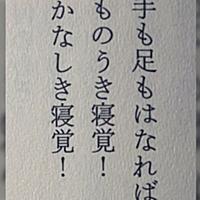 手も足もはなれば
ものうき寝覚！
かなしき寝覚！